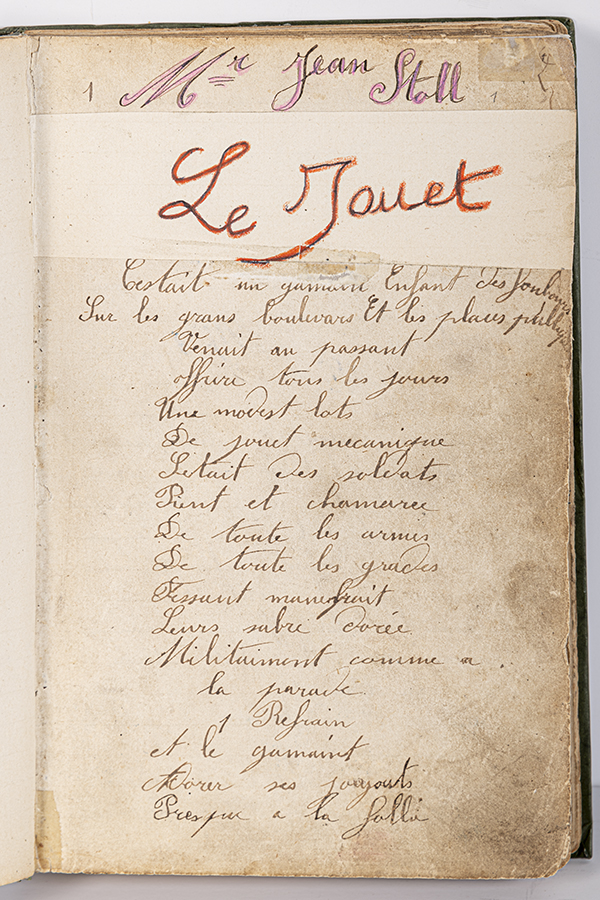 1 Mr Jean Stoll 1
Le Jouet
C'estait un gamain Enfant des foubours
Sur les grans boulevars Et les places
Venait au passant
offrire tous les jours
Une modest lots
De jouet mecanique
Setait des soldats
Pient et chamaree
De toute les armes
De toute les grades
Fessant
Leurs sabre dorée
Militaiment comme a
la parade
1 Refrain
et le gamaint
Adorer ses joujouts
Presque a la follie